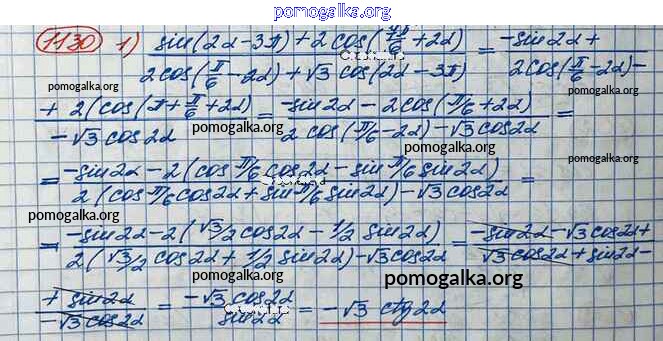 pomogalka.org
1130 1) (sin(2α-3π)+2cos(7π/6+2α))/(2cos(π/6-2α)+√3 cos(2α-3π)) = (-sin2α+)/(2cos(π/6-2α)-
pomogalka.org
(+2(cos(π+π/6+2α))/(-√3cos2α) = (-sin2α-2cos(π/6+2α))/(2cos(π/6-2α)-√3cos2α) =
pomogalka.org
pomogalka.org
= (-sin2α-2(cosπ/6 cos2α-sinπ/6 sin2α))/(2(cosπ/6 cos2α+sinπ/6 sin2α)-√3cos2α) =
pomogalka.org
pomogalka.org
= (-sin2α-2(√3/2 cos2α-1/2 sin2α))/(2(√3/2 cos2α+1/2 sin2α)-√3cos2α) = (-sin2α-√3cos2α+)/(√3cos2α+sin2α-
pomogalka.org
pomogalka.org
(+sin2α)/(-√3cos2α) = (-√3cos2α)/(sin2α) = -√3 ctg2α
pomogalka.org